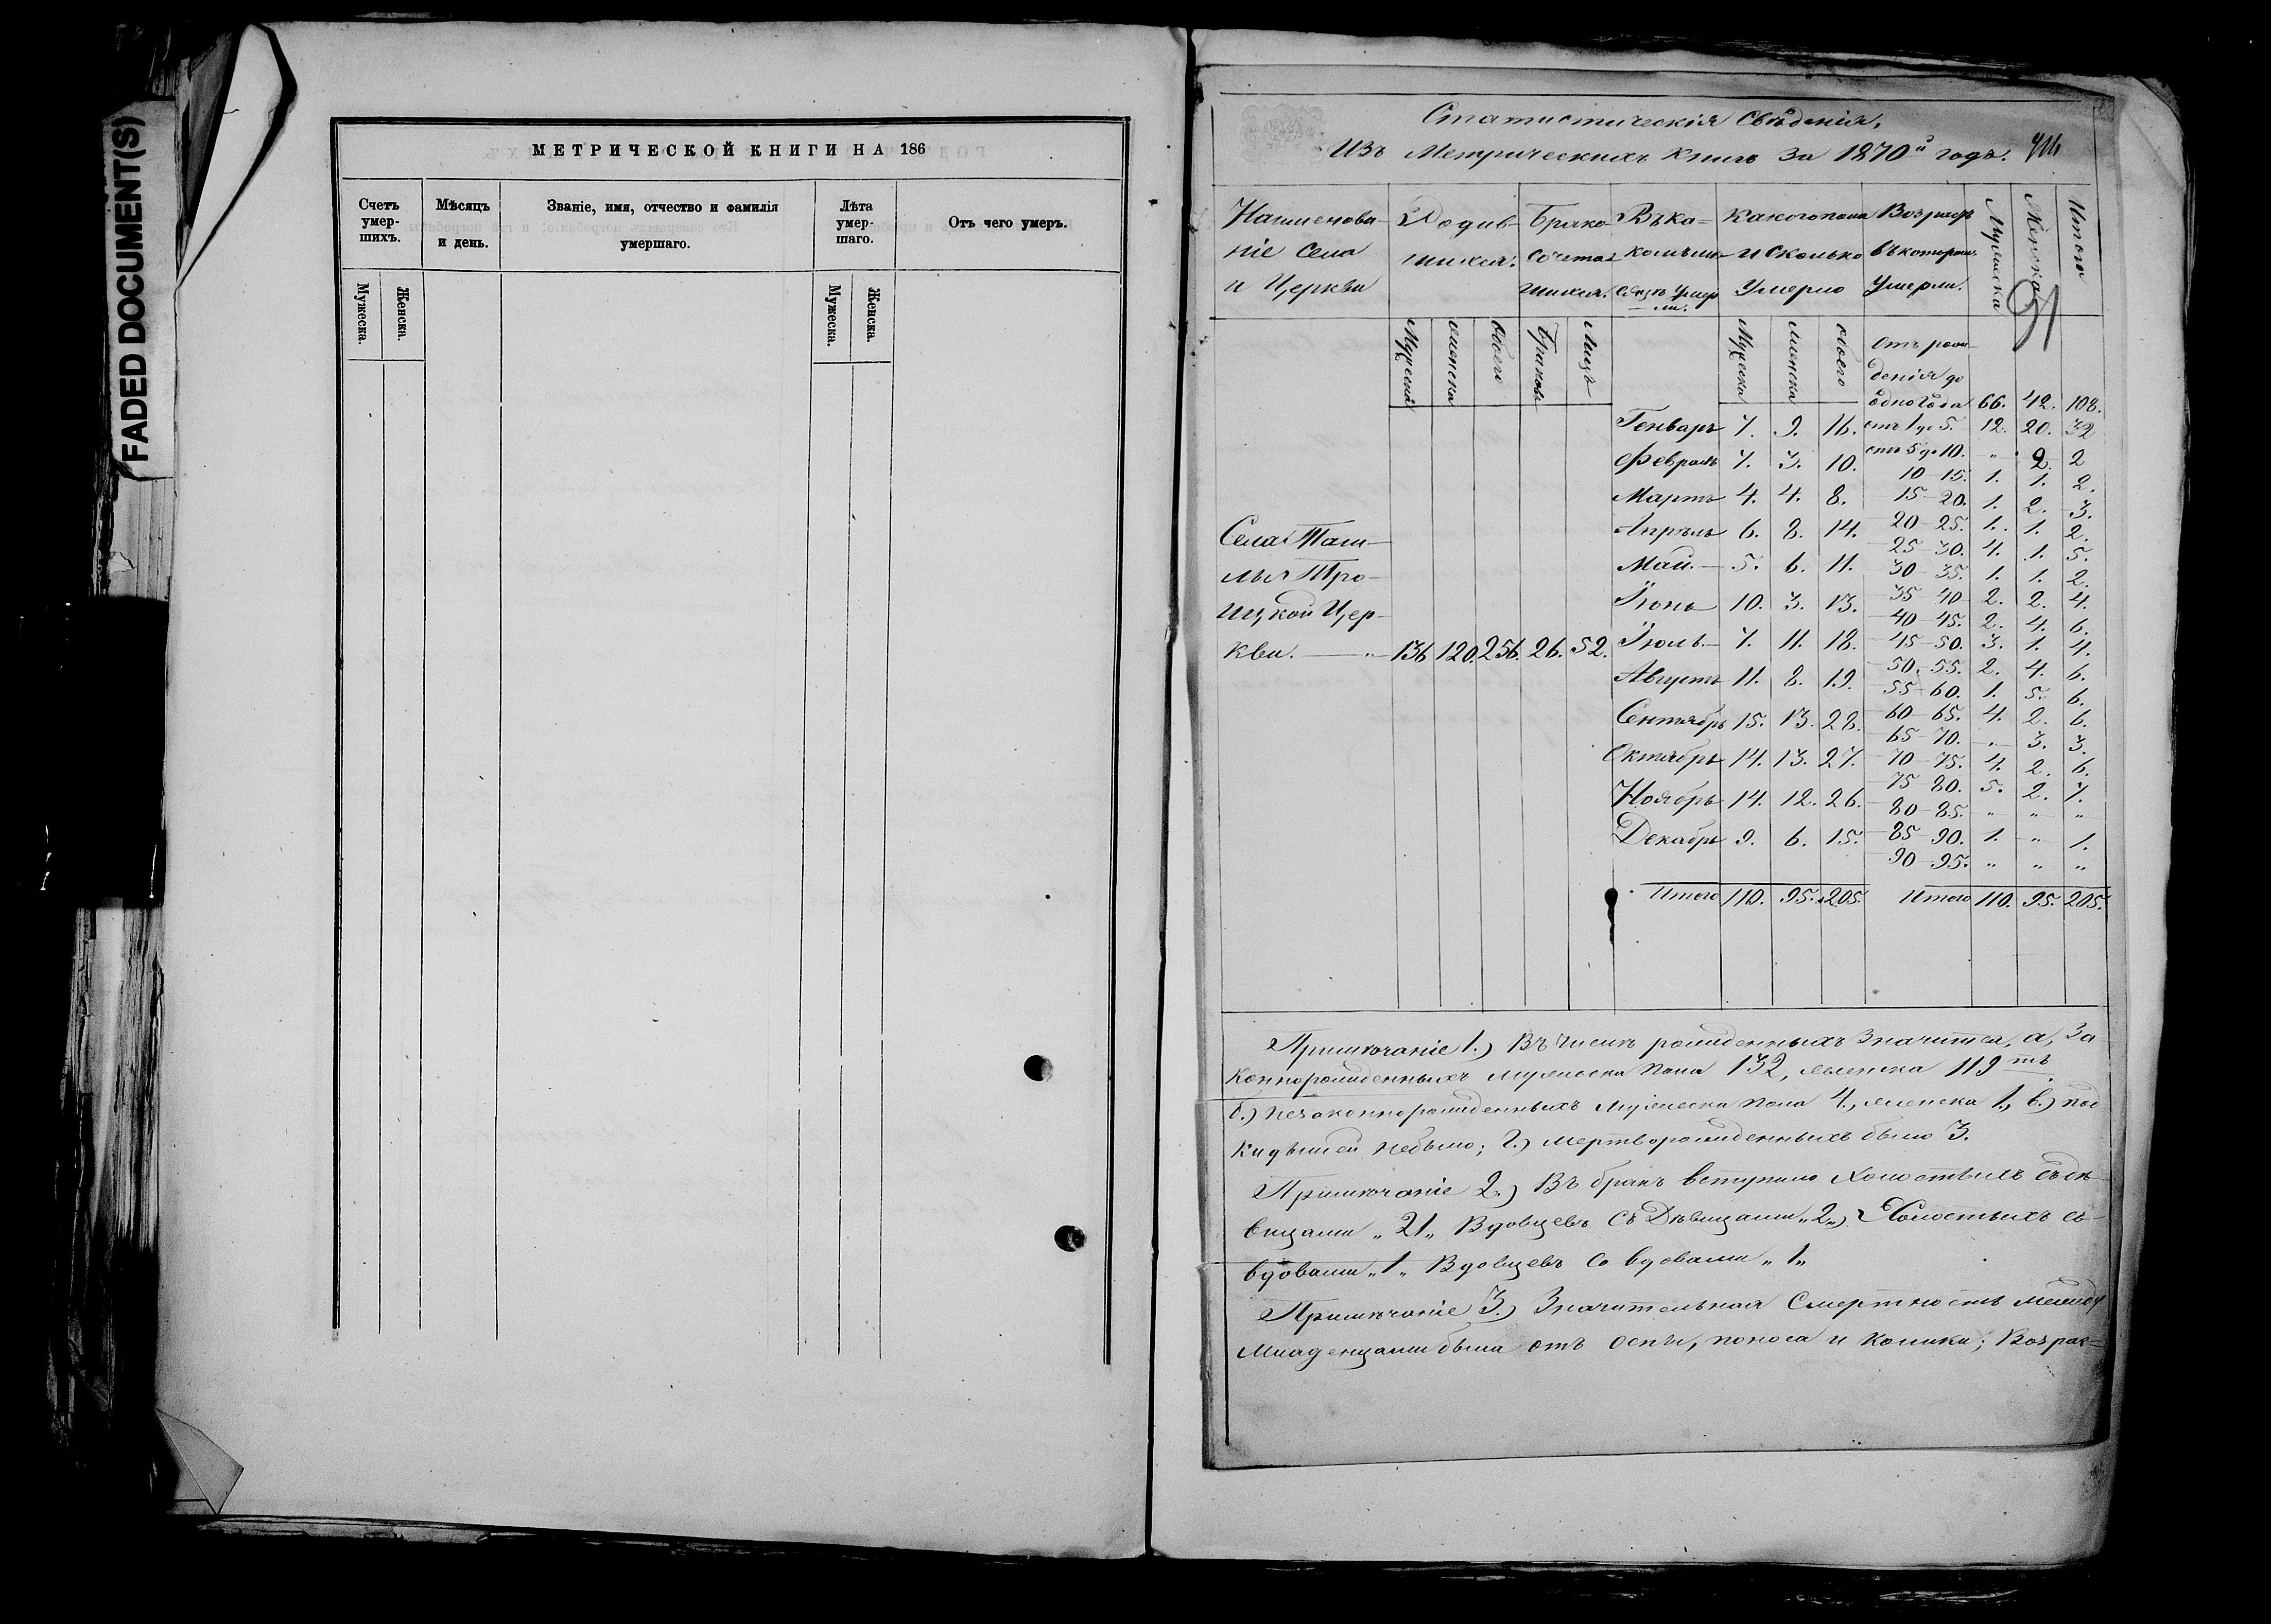 FADED DOCUMENT(S)
МЕТРИЧЕСКОЙ КНИГИ НА 186
Счетъ умер-шихъ.
Мѣсяцъ и день.
Званіе, имя, отчество и фамилія умершаго.
Лѣта умер-шаго.
Отъ чего умеръ.
Мужеска.
Женска.
Мужеска.
Женска.
Статистическія Свѣденія,
Изъ Метрическихъ Книгъ За 1870й годъ.
Наименова-
ніе Села
и Церкви
Родив-
шихся.
Брако-
сочетав
шихся.
Въ ка-
комъ мѣ-
сяцѣ Умер
ли.
Какого пола
и сколько
Умерло
Возрастъ
въ которомъ
Умерли.
Мужеска
Женска
Итого
Мужеска
Женска
Обоего
Браковъ
Лицъ
Мужеска
Женска
Обоего
Отъ рож-
денія до
одного года 66. 42. 108.
Генварь 7. 9. 16. отъ 1 до 5. 12. 20. 32
Февраль 7. 3. 10. отъ 5 до 10. „ 2. 2
10-15. 1. 1. 2.
Мартъ 4. 4. 8. 15-20. 1. 2. 3.
Апрѣль 6. 8. 14. 20-25. 1. 1. 2.
25-30. 4. 1. 5.
Май. 5. 6. 11. 30-35. 1. 1. 2.
Іюнь 10. 3. 13. 35-40 2. 2. 4.
40-45. 2. 4. 6.
Іюль. 7. 11. 18. 45-50. 3. 1. 4.
50-55. 2. 4. 6.
Августъ 11. 8. 19. 55-60. 1. 5. 6.
Сентябрь 15. 13. 28. 60-65. 4. 2. 6.
65-70. „ 3. 3.
Октябрь 14. 13. 27. 70-75. 4. 2. 6.
75-80. 5. 2. 7.
Ноябрь 14. 12. 26. 80-85. „ „ „
Декабрь 9. 6. 15. 85-90. 1. „ 1.
90-95. „ „ „
Итого 110. 95. 205. Итого 110. 95. 205.
Села Таш-
лы Тро-
ицкой Цер-
кви. 136 120. 256. 26. 52.
Примѣчаніе 1.) Въ числѣ рожденныхъ Значится, а, За
коннорожденныхъ мужеска пола 132, женска 119ть
б.) незаконнорожденныхъ мужеска пола 4., женска 1., в.) под
кидышей небыло; г.) мертворожденныхъ было 3.
Примѣчаніе 2.) Въ бракъ вступило холостыхъ съ дѣ
вицами „21„ Вдовцевъ съ Дѣвицами „2„ Холостыхъ со
вдовами „1„ Вдовцевъ Со вдовами „1„
Примѣчаніе 3.) Значительная Смертность между
Младенцами была отъ оспы, поноса и колики; Возрас=